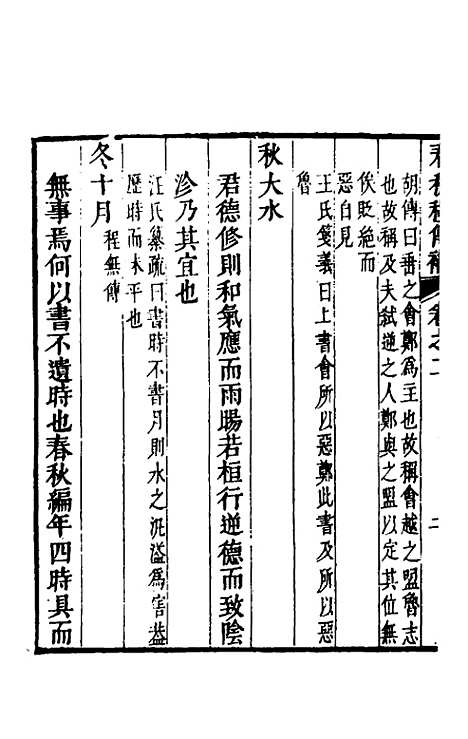 胡傳曰垂之會鄭為主也故稱會越之盟魯志
也故稱及夫弑逆之人鄭與之盟以定其位無
俟貶絕而
惡自見
王氏箋義曰上書會所以惡鄭此書及所以惡
魯
秋大水
君德修則和氣應而雨暘若桓行逆德而致陰
沴乃其宜也
汪氏纂疏曰書時不書月則水之汎溢為害葢
歷時而未平也
冬十月 程無傳
無事焉何以書不遺時也春秋編年四時具而